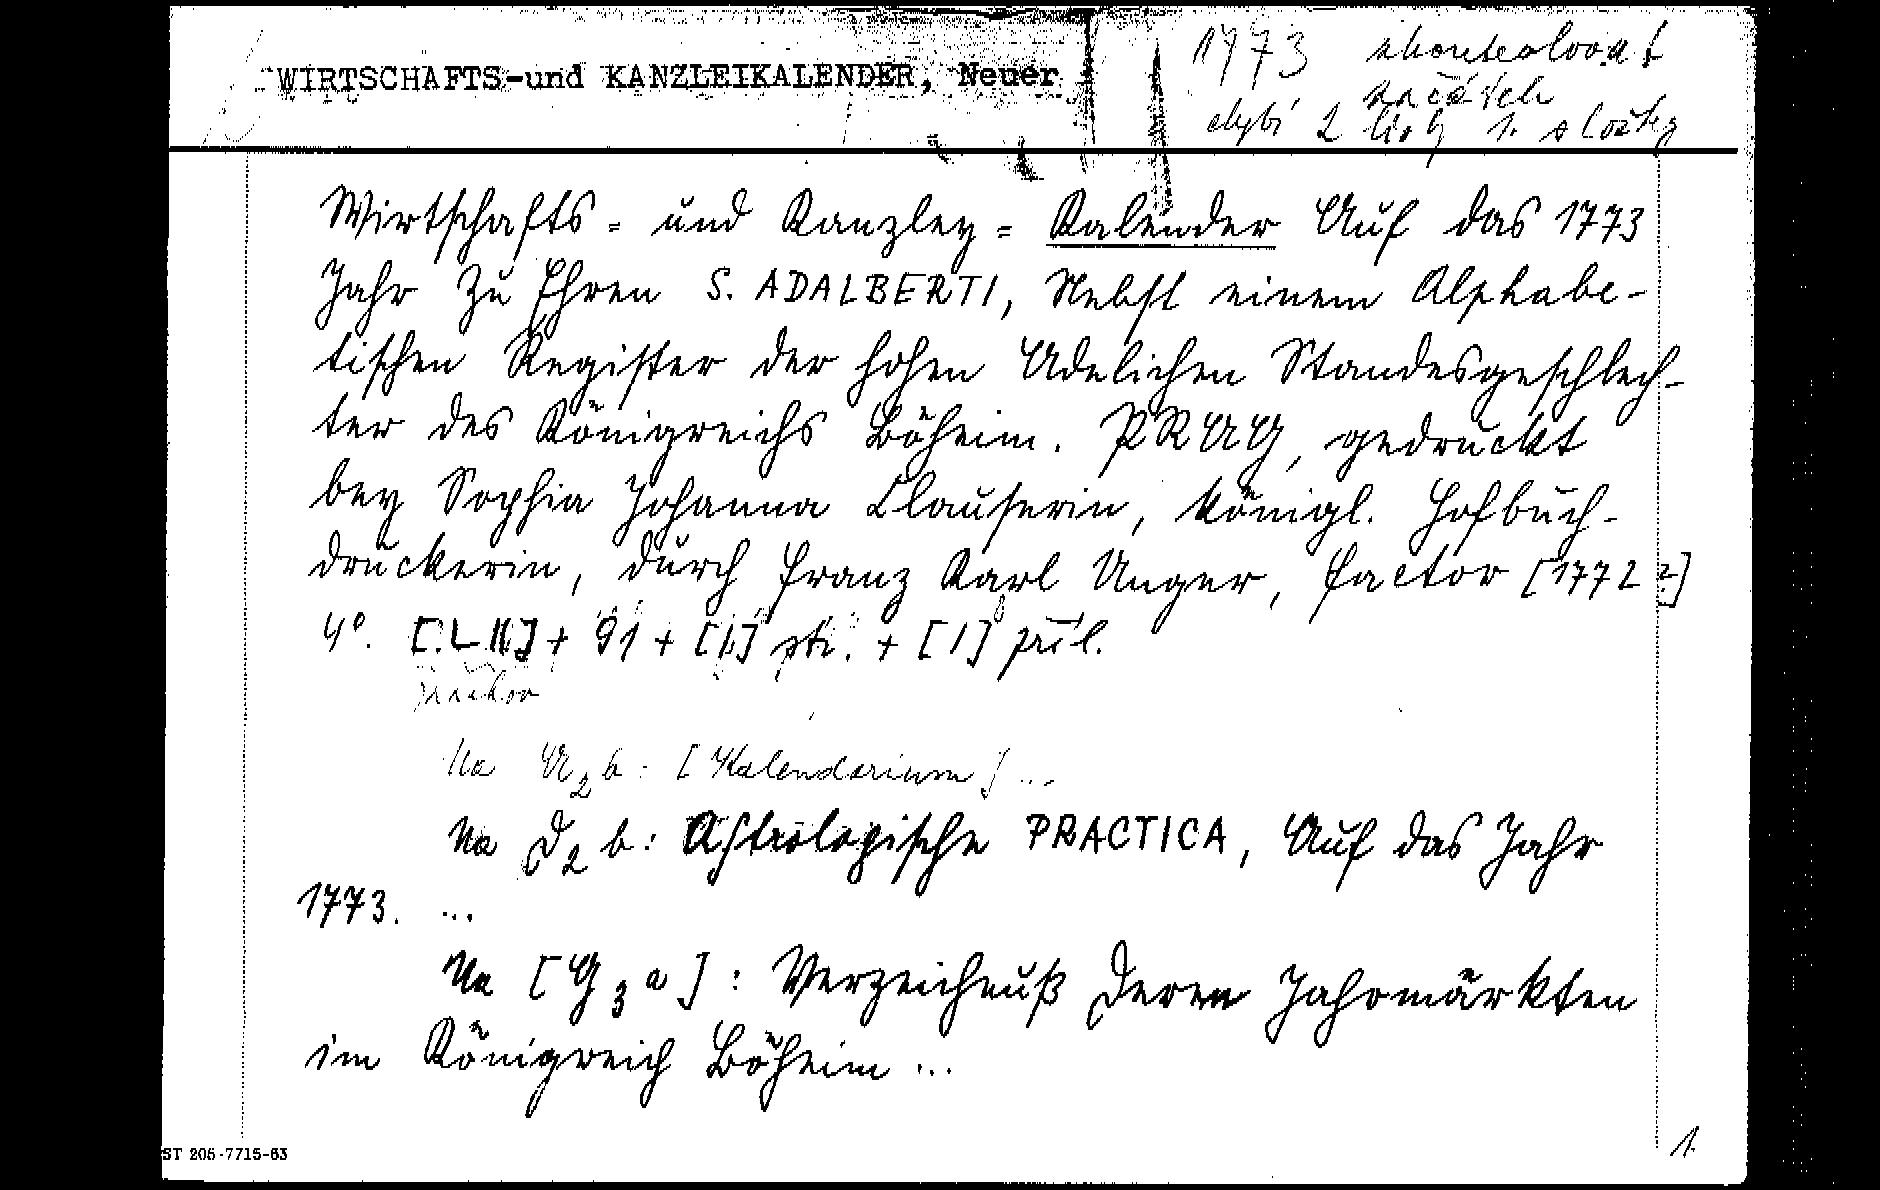 WIRTSCHAFTS-und KANZLEIKALENDER, Neuer
1773 zkontrolovat
začátek
chybí 2 listy 1. složky
Wirtschafts- und Kanzley- Kalender Auf das 1773
Jahr zu Ehren S. ADALBERTI, Nebst einem Alphabe-
tischen Register der hohen Adelichen Standesgeschlech-
ter des Königreichs Böheim. PRAG, gedruckt
bey Sophia Johanna Clauserin, königl. Hofbuch-
druckerin, durch Franz Karl Unger, Factor [1772?]
4°. + 91 + [1] str. + [1] příl.
Na A2b: [Kalendarium] ...
Na D2b: Astrologische PRACTICA, Auf das Jahr
1773. ...
Na [G3a]: Verzeichnuß Deren Jahrmärkten
im Königreich Böheim ...
ST 205-7715-63
1.